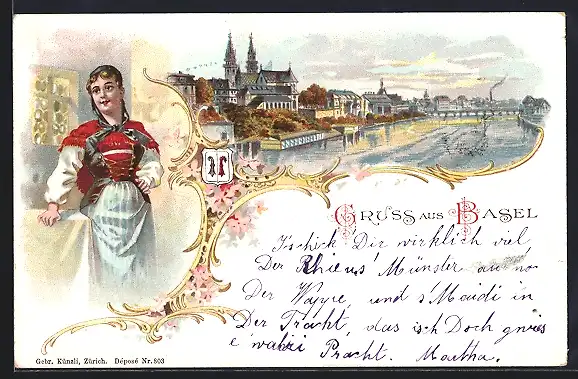 GRUSS AUS BASEL
I schick Dir wirklich viel,
Der Rhi eus' Münster au no
Der Wappe, und s'Maidi in
Der Tracht, das isch Doch gwis
e wahri Pracht. Martha.
Gebr. Künzli, Zürich. Déposé Nr. 803